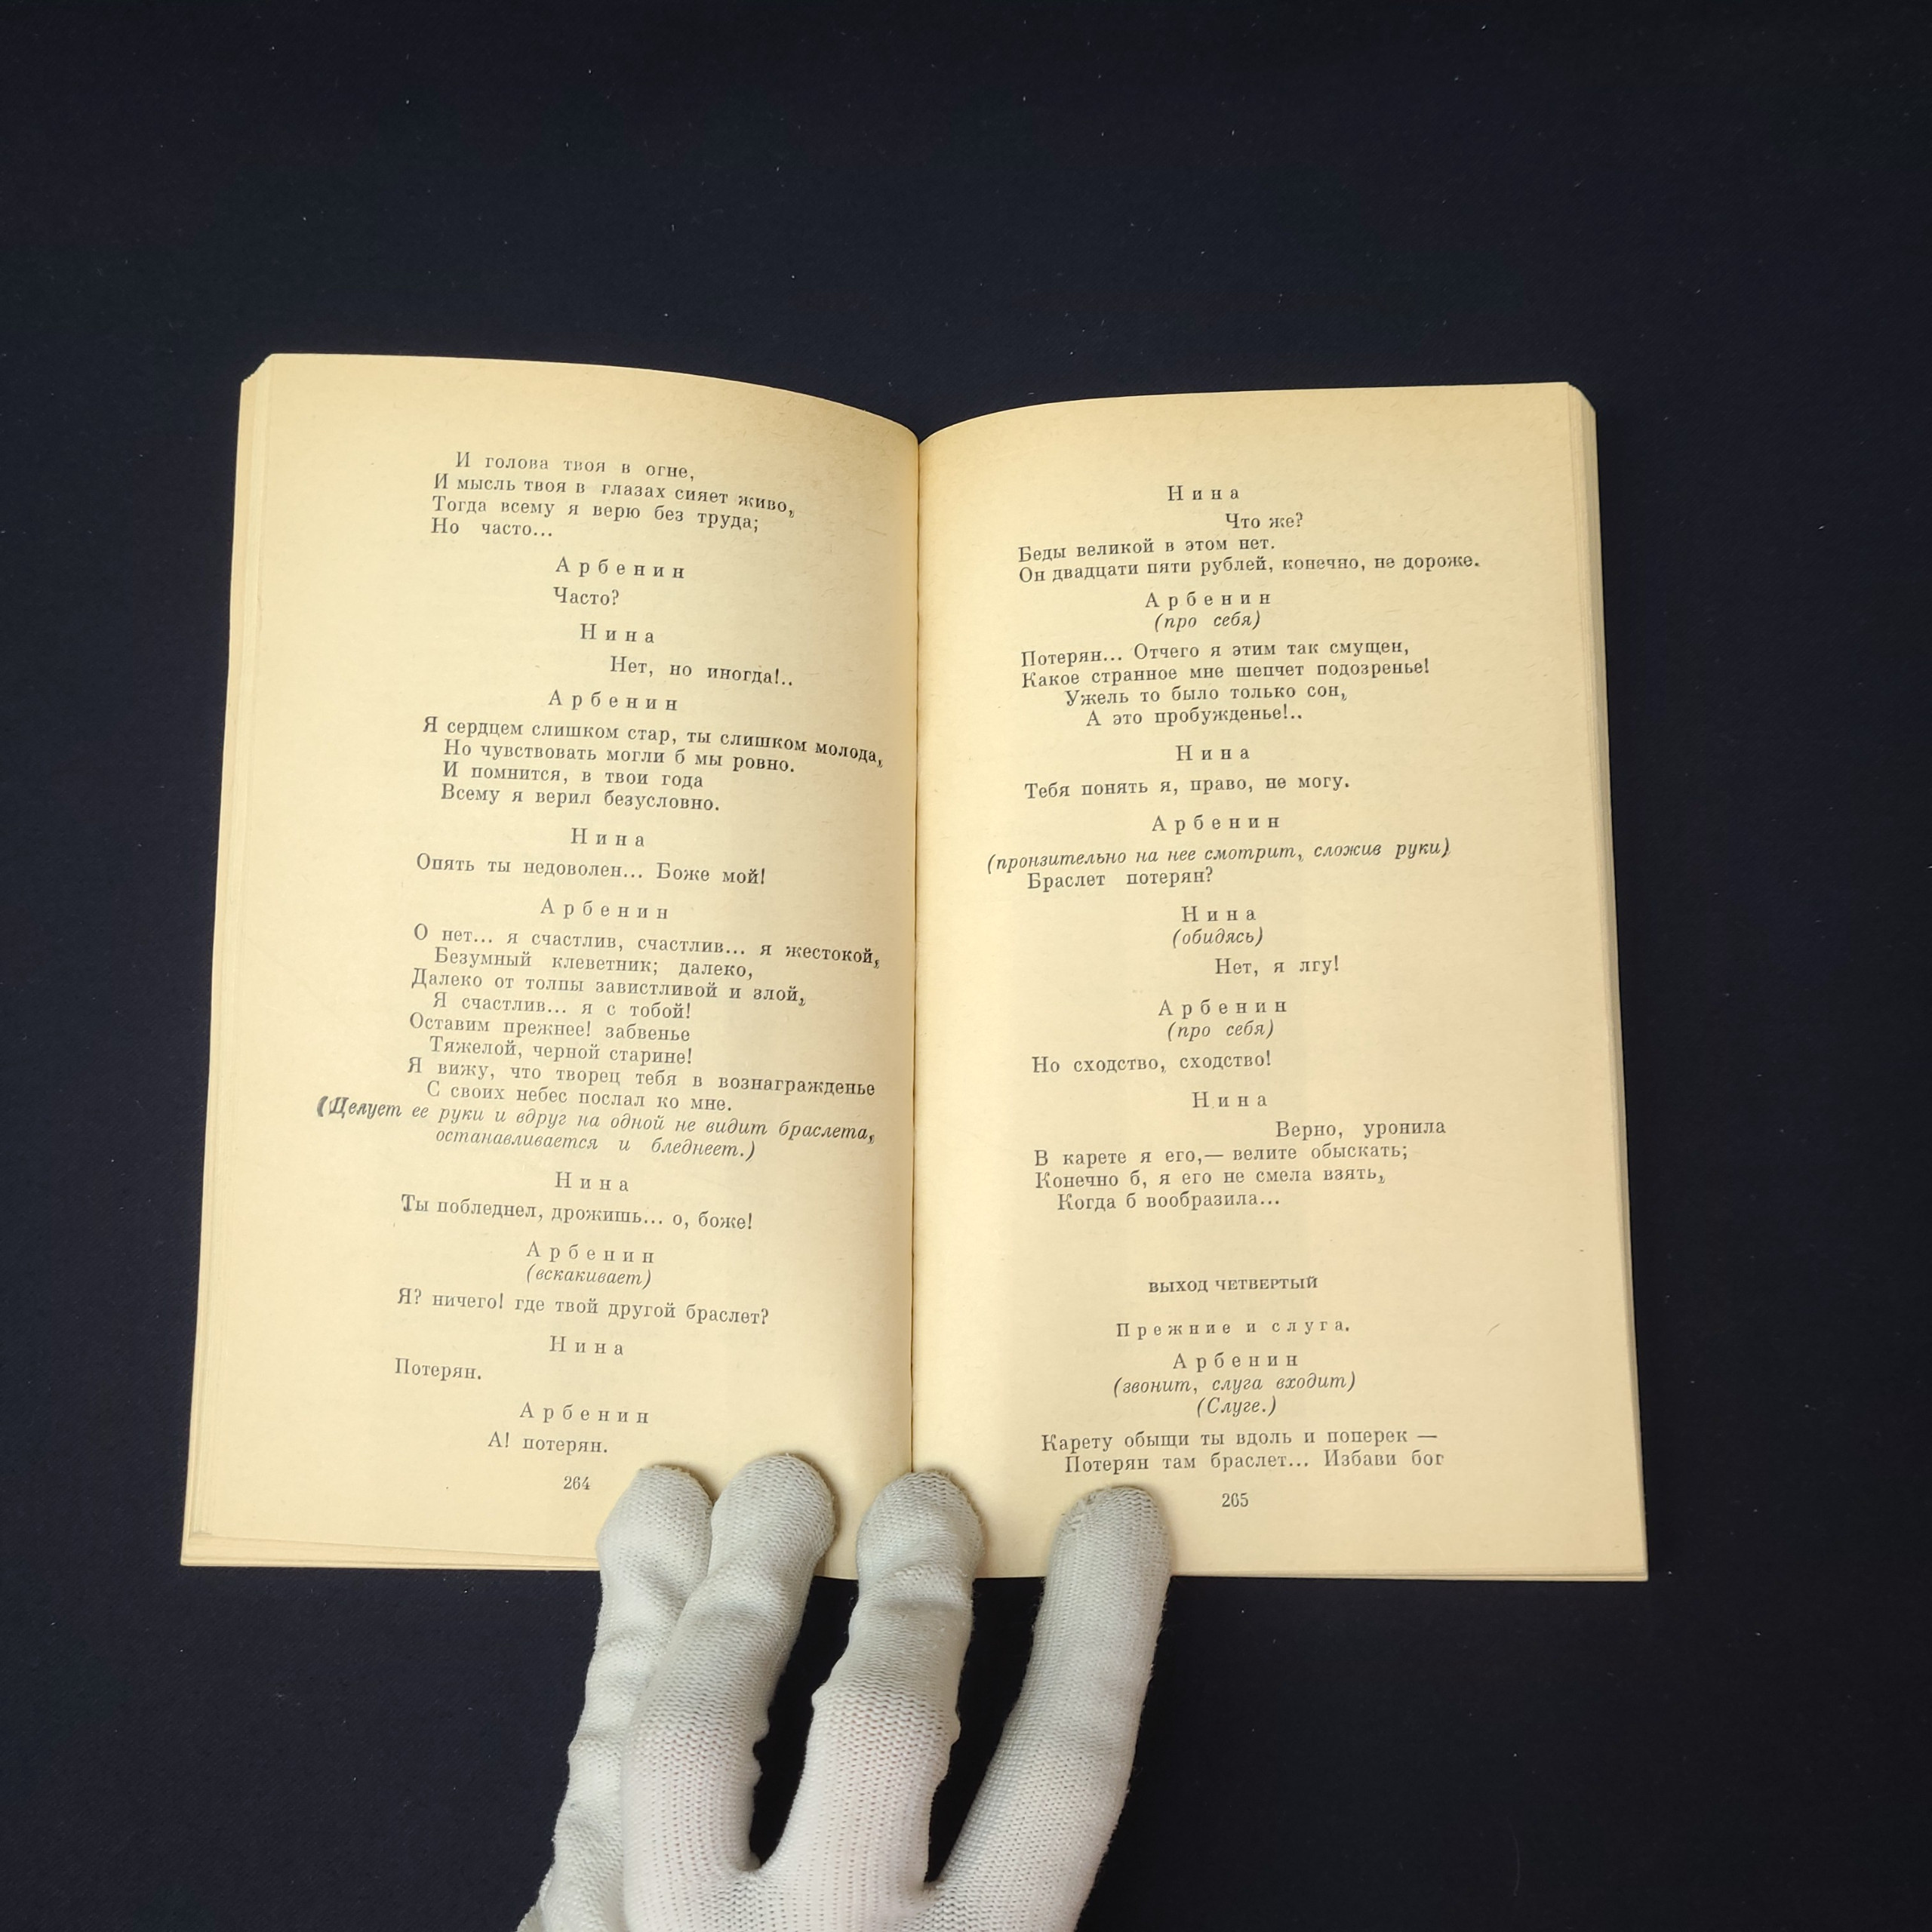 И голова твоя в огне,
И мысль твоя в глазах сияет живо,
Тогда всему я верю без труда;
Но часто...
Арбенин
Часто?
Нина
Нет, но иногда!..
Арбенин
Я сердцем слишком стар, ты слишком молода,
Но чувствовать могли б мы ровно.
И помнится, в твои года
Всему я верил безусловно.
Нина
Опять ты недоволен... Боже мой!
Арбенин
О нет... я счастлив, счастлив... я жестокой,
Безумный клеветник; далеко,
Далеко от толпы завистливой и злой,
Я счастлив... я с тобой!
Оставим прежнее! забвенье
Тяжелой, черной старине!
Я вижу, что творец тебя в вознагражденье
С своих небес послал ко мне.
(Целует ее руки и вдруг на одной не видит браслета,
останавливается и бледнеет.)
Нина
Ты побледнел, дрожишь... о, боже!
Арбенин
(вскакивает)
Я? ничего! где твой другой браслет?
Нина
Потерян.
Арбенин
А! потерян.
264
Нина
Что же?
Беды великой в этом нет.
Он двадцати пяти рублей, конечно, не дороже.
Арбенин
(про себя)
Потерян... Отчего я этим так смущен,
Какое странное мне шепчет подозренье!
Ужель то было только сон,
А это пробужденье!..
Нина
Тебя понять я, право, не могу.
Арбенин
(пронзительно на нее смотрит, сложив руки)
Браслет потерян?
Нина
(обидясь)
Нет, я лгу!
Арбенин
(про себя)
Но сходство, сходство!
Нина
Верно, уронила
В карете я его,— велите обыскать;
Конечно б, я его не смела взять,
Когда б вообразила...
ВЫХОД ЧЕТВЕРТЫЙ
Прежние и слуга.
Арбенин
(звонит, слуга входит)
(Слуге.)
Карету обыщи ты вдоль и поперек —
Потерян там браслет... Избави бог
265